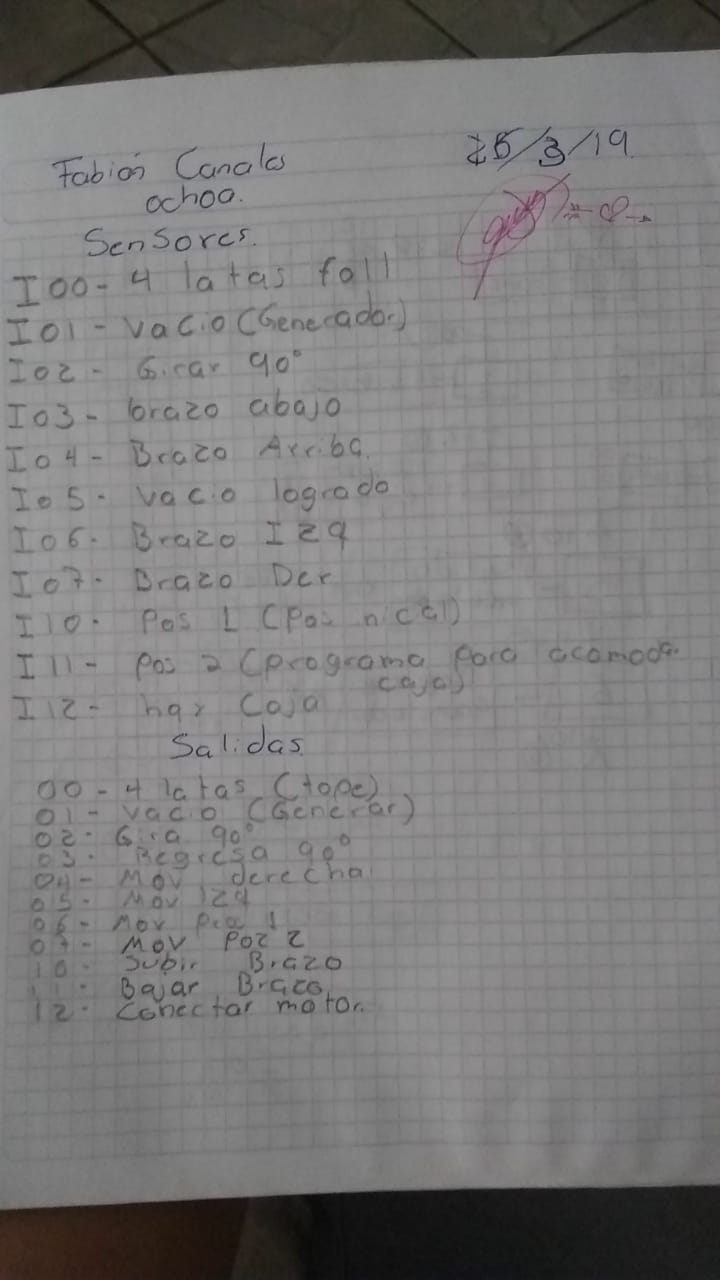 Fabián Canales 25/3/19
ochoa.
Sensores.
I00- 4 latas fall
I01- Vacio (Generador)
I02- Girar 90°
I03- brazo abajo
I04- Brazo Arriba.
I05- Vacio logrado
I06- Brazo Izq
I07- Brazo Der
I10- Pos 1 (Pos
I11- pos 2 (programa para acomoda
caja)
I12- hay Caja
Salidas.
00- 4 latas (tope)
01- Vacio (Generar)
02- Gira 90°
03- Regresa 90°
04- Mov derecha
05- Mov izq
06- Mov 1
07- Mov Poz 2
10- Subir Brazo
11- Bajar Brazo
12- Conectar motor.